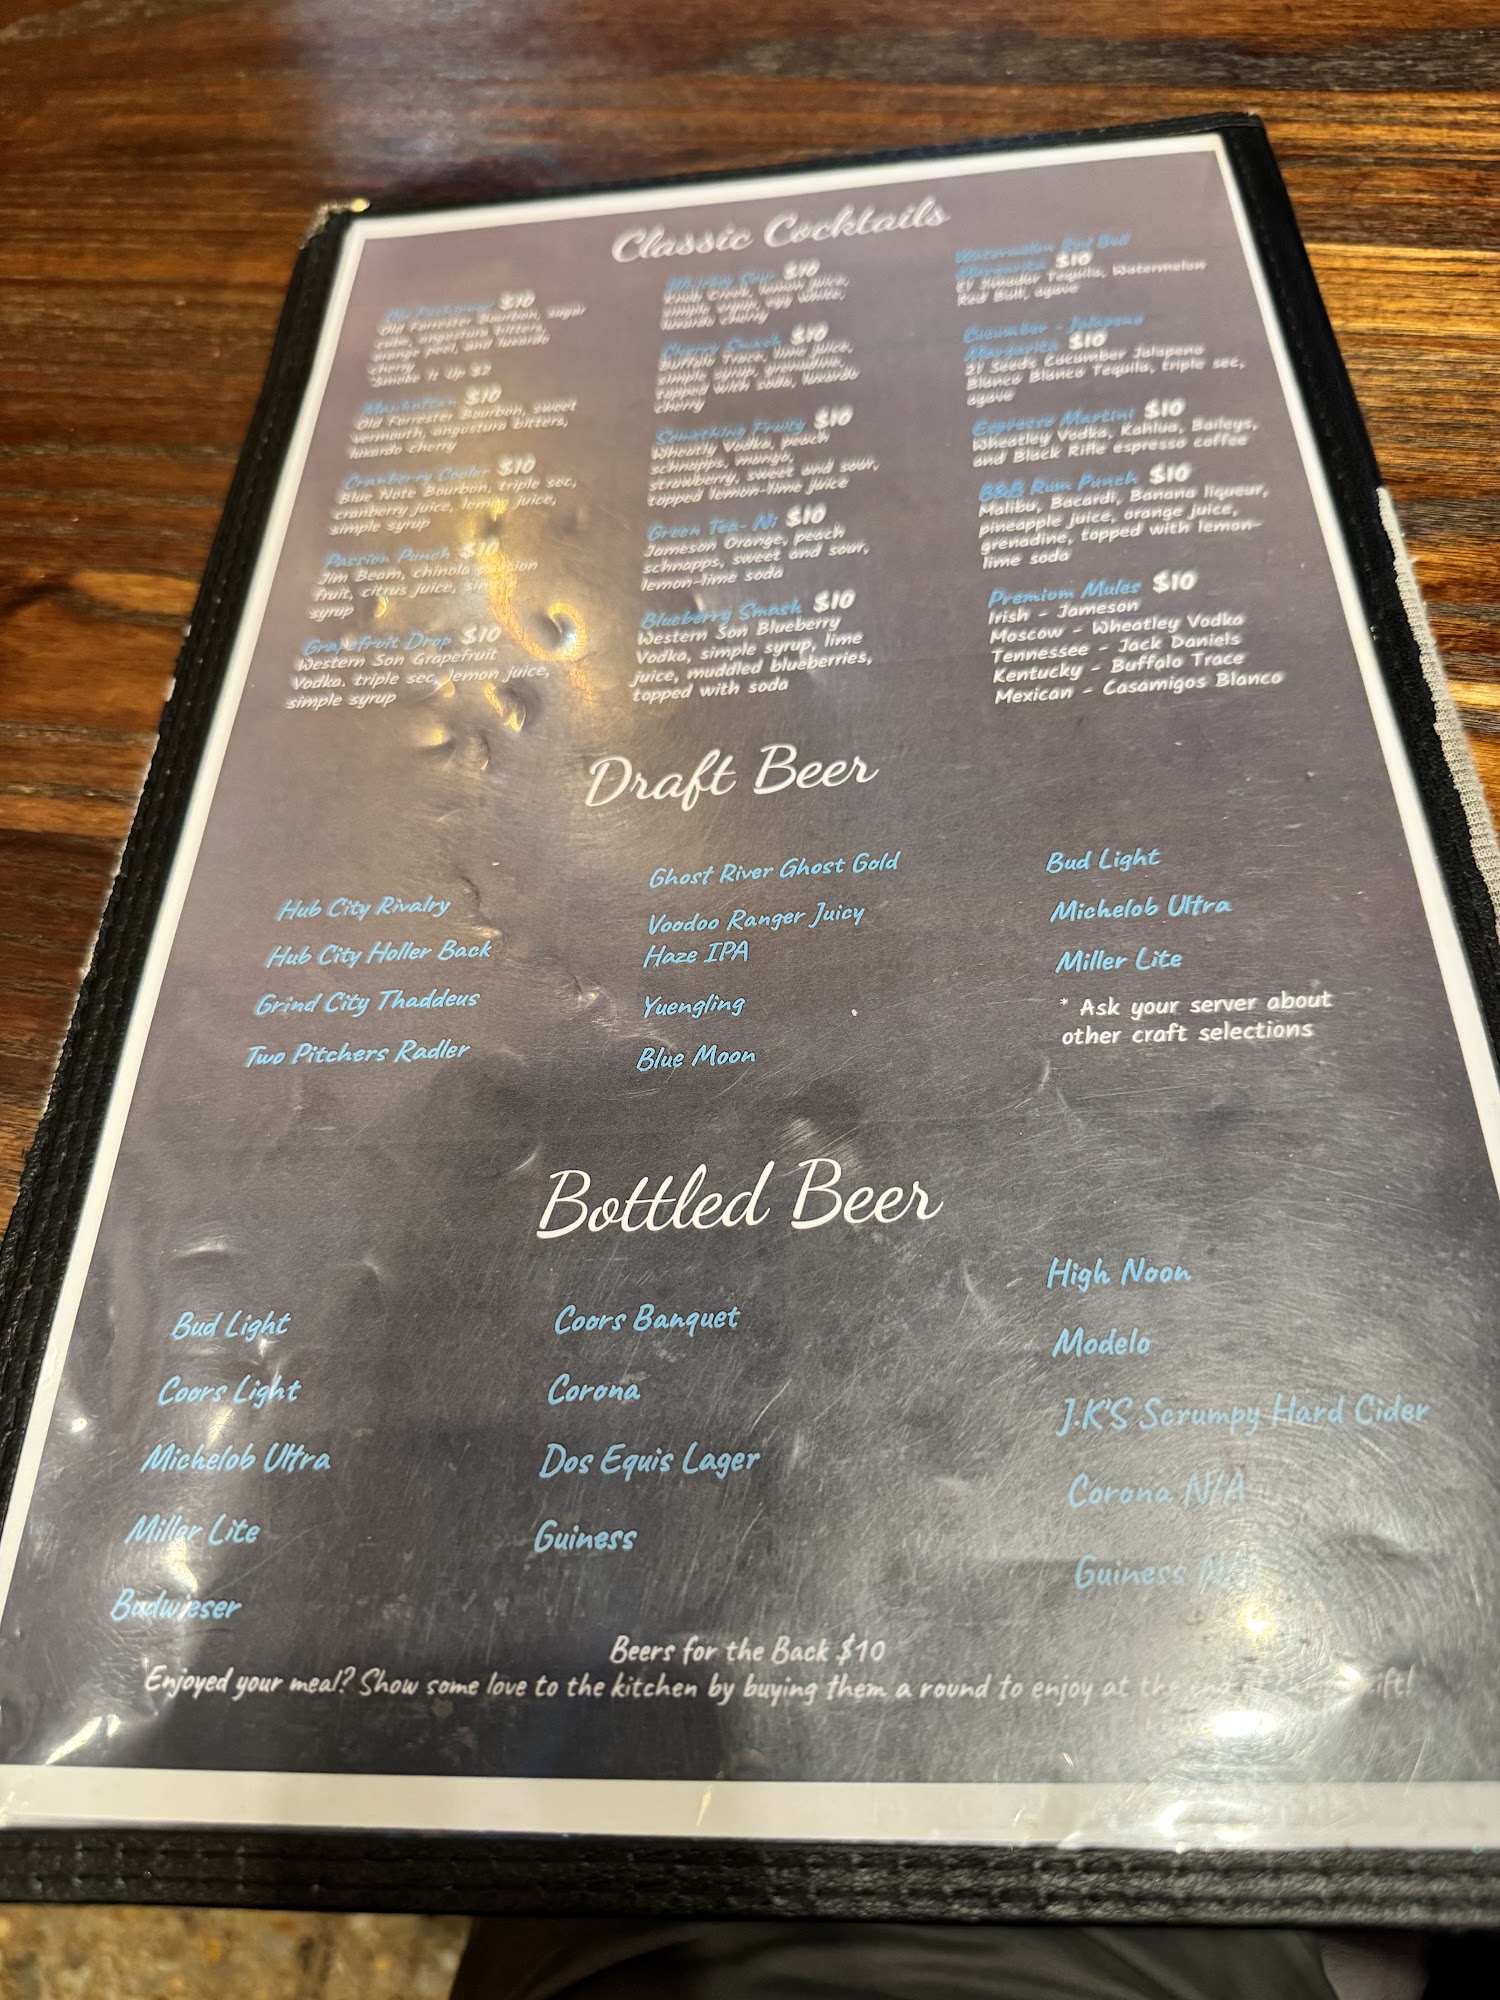 Classic Cocktails
Old Fashioned $10
Old Forrester Bourbon, sugar
cube, angostura bitters,
orange peel, and luxardo
cherry
Smoke It Up $2
Manhattan $10
Old Forrester Bourbon, sweet
vermouth, angostura bitters,
luxardo cherry
Cranberry Cooler $10
Blue Note Bourbon, triple sec,
cranberry juice, lemon juice,
simple syrup
Passion Punch $10
Jim Beam, chinola passion
fruit, citrus juice, simple
syrup
Grapefruit Drop $10
Western Son Grapefruit
Vodka. triple sec, lemon juice,
simple syrup
Whiskey Sour $10
Knob Creek, lemon juice,
simple syrup, egg white,
luxardo cherry
Cherry Smash $10
Buffalo Trace, lime juice,
simple syrup, grenadine,
topped with soda, luxardo
cherry
Something Fruity $10
Wheatly Vodka, peach
schnapps, mango,
strawberry, sweet and sour,
topped lemon-lime juice
Green Tea- Ni $10
Jameson Orange, peach
schnapps, sweet and sour,
lemon-lime soda
Blueberry Smash $10
Western Son Blueberry
Vodka, simple syrup, lime
juice, muddled blueberries,
topped with soda
Watermelon Red Bull
Margarita $10
El Jimador Tequila, Watermelon
Red Bull, agave
Cucumber - Jalapeno
Margarita $10
21 Seeds Cucumber Jalapeno
Blanco Blanco Tequila, triple sec,
agave
Espresso Martini $10
Wheatley Vodka, Kahlua, Baileys,
and Black Rifle espresso coffee
B&B Rum Punch $10
Malibu, Bacardi, Banana liqueur,
pineapple juice, orange juice,
grenadine, topped with lemon-
lime soda
Premium Mules $10
Irish - Jameson
Moscow - Wheatley Vodka
Tennessee - Jack Daniels
Kentucky - Buffalo Trace
Mexican - Casamigos Blanco
Draft Beer
Hub City Rivalry
Hub City Holler Back
Grind City Thaddeus
Two Pitchers Radler
Ghost River Ghost Gold
Voodoo Ranger Juicy
Haze IPA
Yuengling
Blue Moon
Bud Light
Michelob Ultra
Miller Lite
* Ask your server about
other craft selections
Bottled Beer
Bud Light
Coors Light
Michelob Ultra
Miller Lite
Budwieser
Coors Banquet
Corona
Dos Equis Lager
Guiness
High Noon
Modelo
J.K'S Scrumpy Hard Cider
Corona N/A
Guiness N/A
Beers for the Back $10
Enjoyed your meal? Show some love to the kitchen by buying them a round to enjoy at the end of